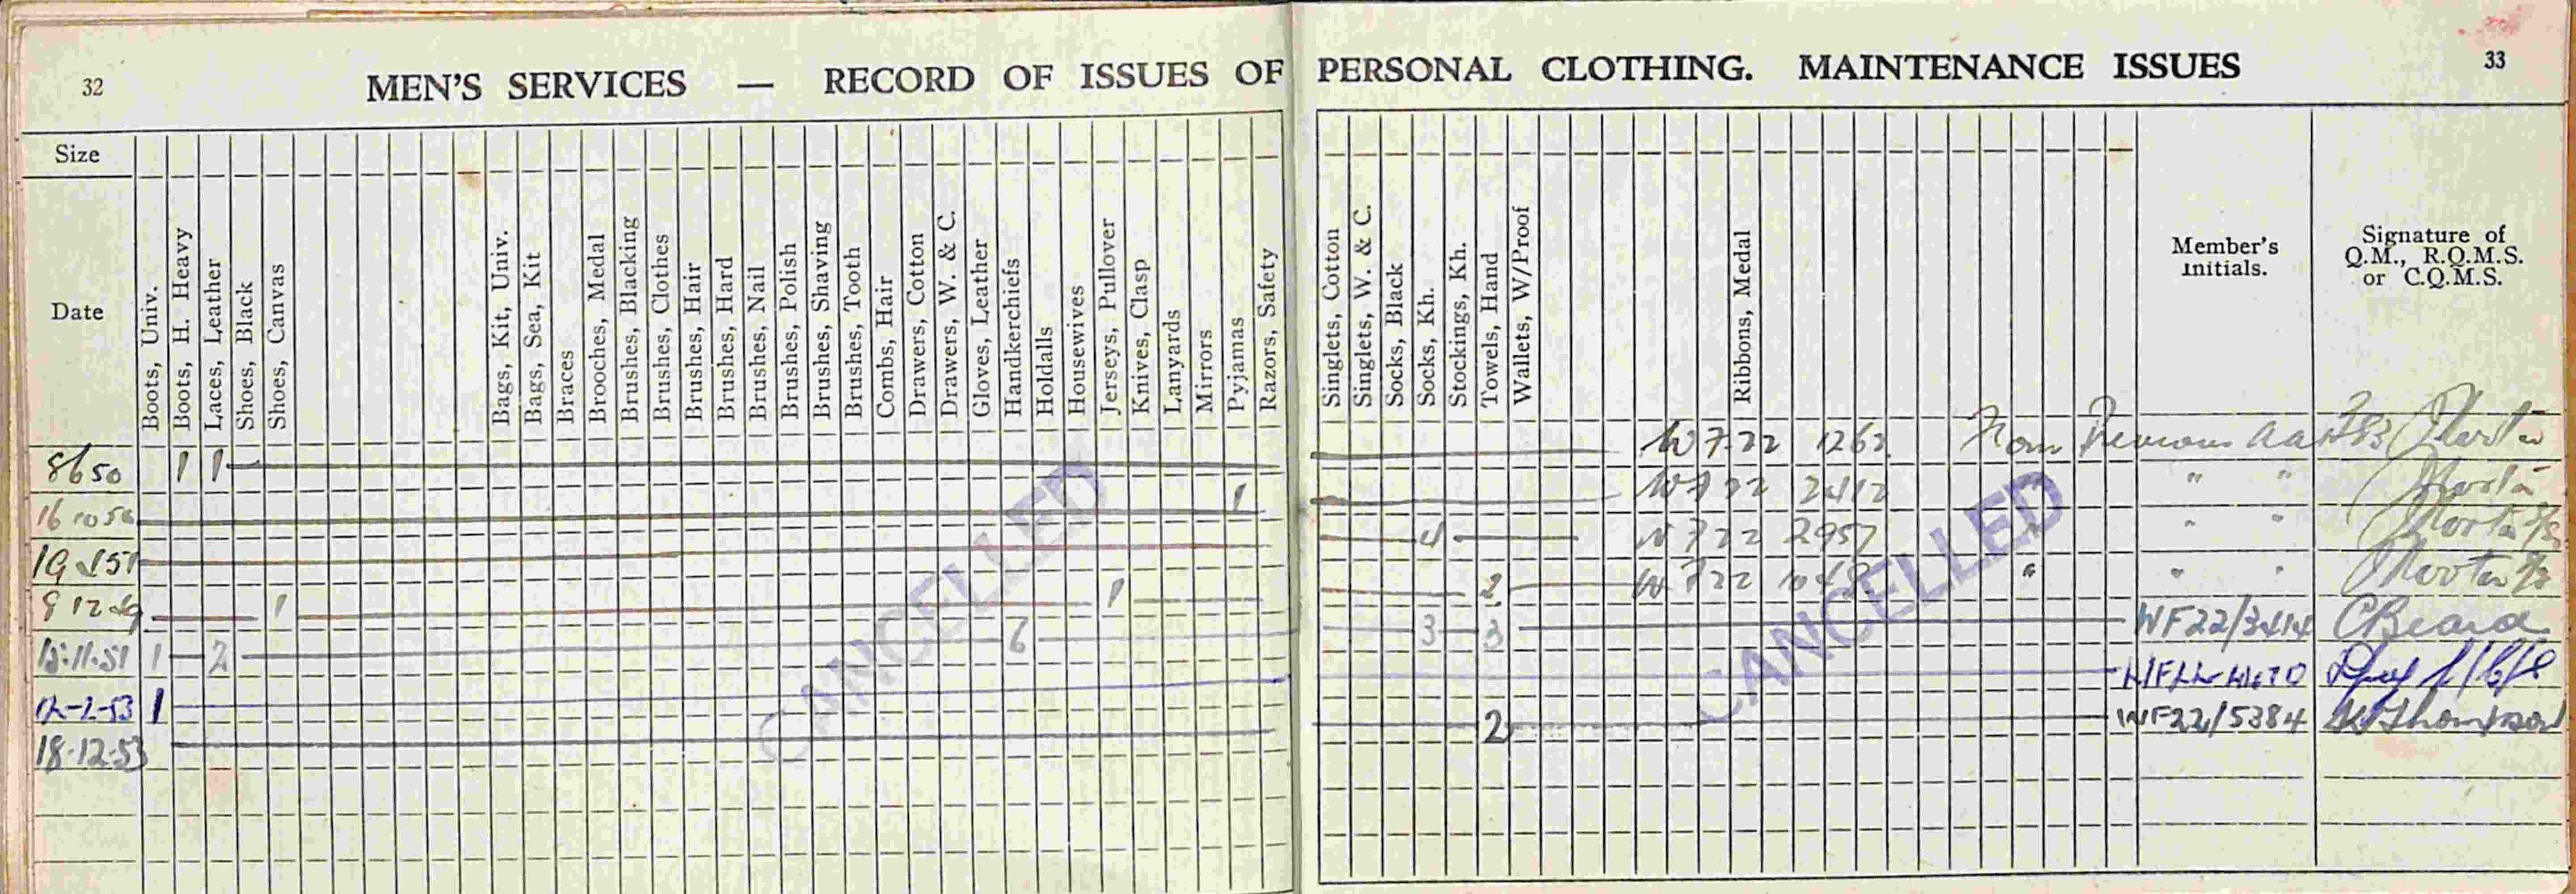 32
MEN'S SERVICES — RECORD OF ISSUES OF PERSONAL CLOTHING. MAINTENANCE ISSUES
33
Size
Date
Boots, Univ.
Boots, H. Heavy
Laces, Leather
Shoes, Black
Shoes, Canvas
Bags, Kit, Univ.
Bags, Sea, Kit
Braces
Brooches, Medal
Brushes, Blacking
Brushes, Clothes
Brushes, Hair
Brushes, Hard
Brushes, Nail
Brushes, Polish
Brushes, Shaving
Brushes, Tooth
Combs, Hair
Drawers, Cotton
Drawers, W. & C.
Gloves, Leather
Handkerchiefs
Holdalls
Housewives
Jerseys, Pullover
Knives, Clasp
Lanyards
Mirrors
Pyjamas
Razors, Safety
Singlets, Cotton
Singlets, W. & C.
Socks, Black
Socks, Kh.
Stockings, Kh.
Towels, Hand
Wallets, W/Proof
Ribbons, Medal
Member's Initials.
Signature of Q.M., R.Q.M.S. or C.Q.M.S.
8 6 50 1 1 WF22 1262 From Previous
16 10 50 1 WF22 2412 " "
4 WF22 2957 " "
1 1 2 WF22 " " "
15.11.51 1 2 6 3 3 WF22/3414 C Beard
12-2-53 1
18-12-53 2 WF22/5384 Thompson
CANCELLED
CANCELLED